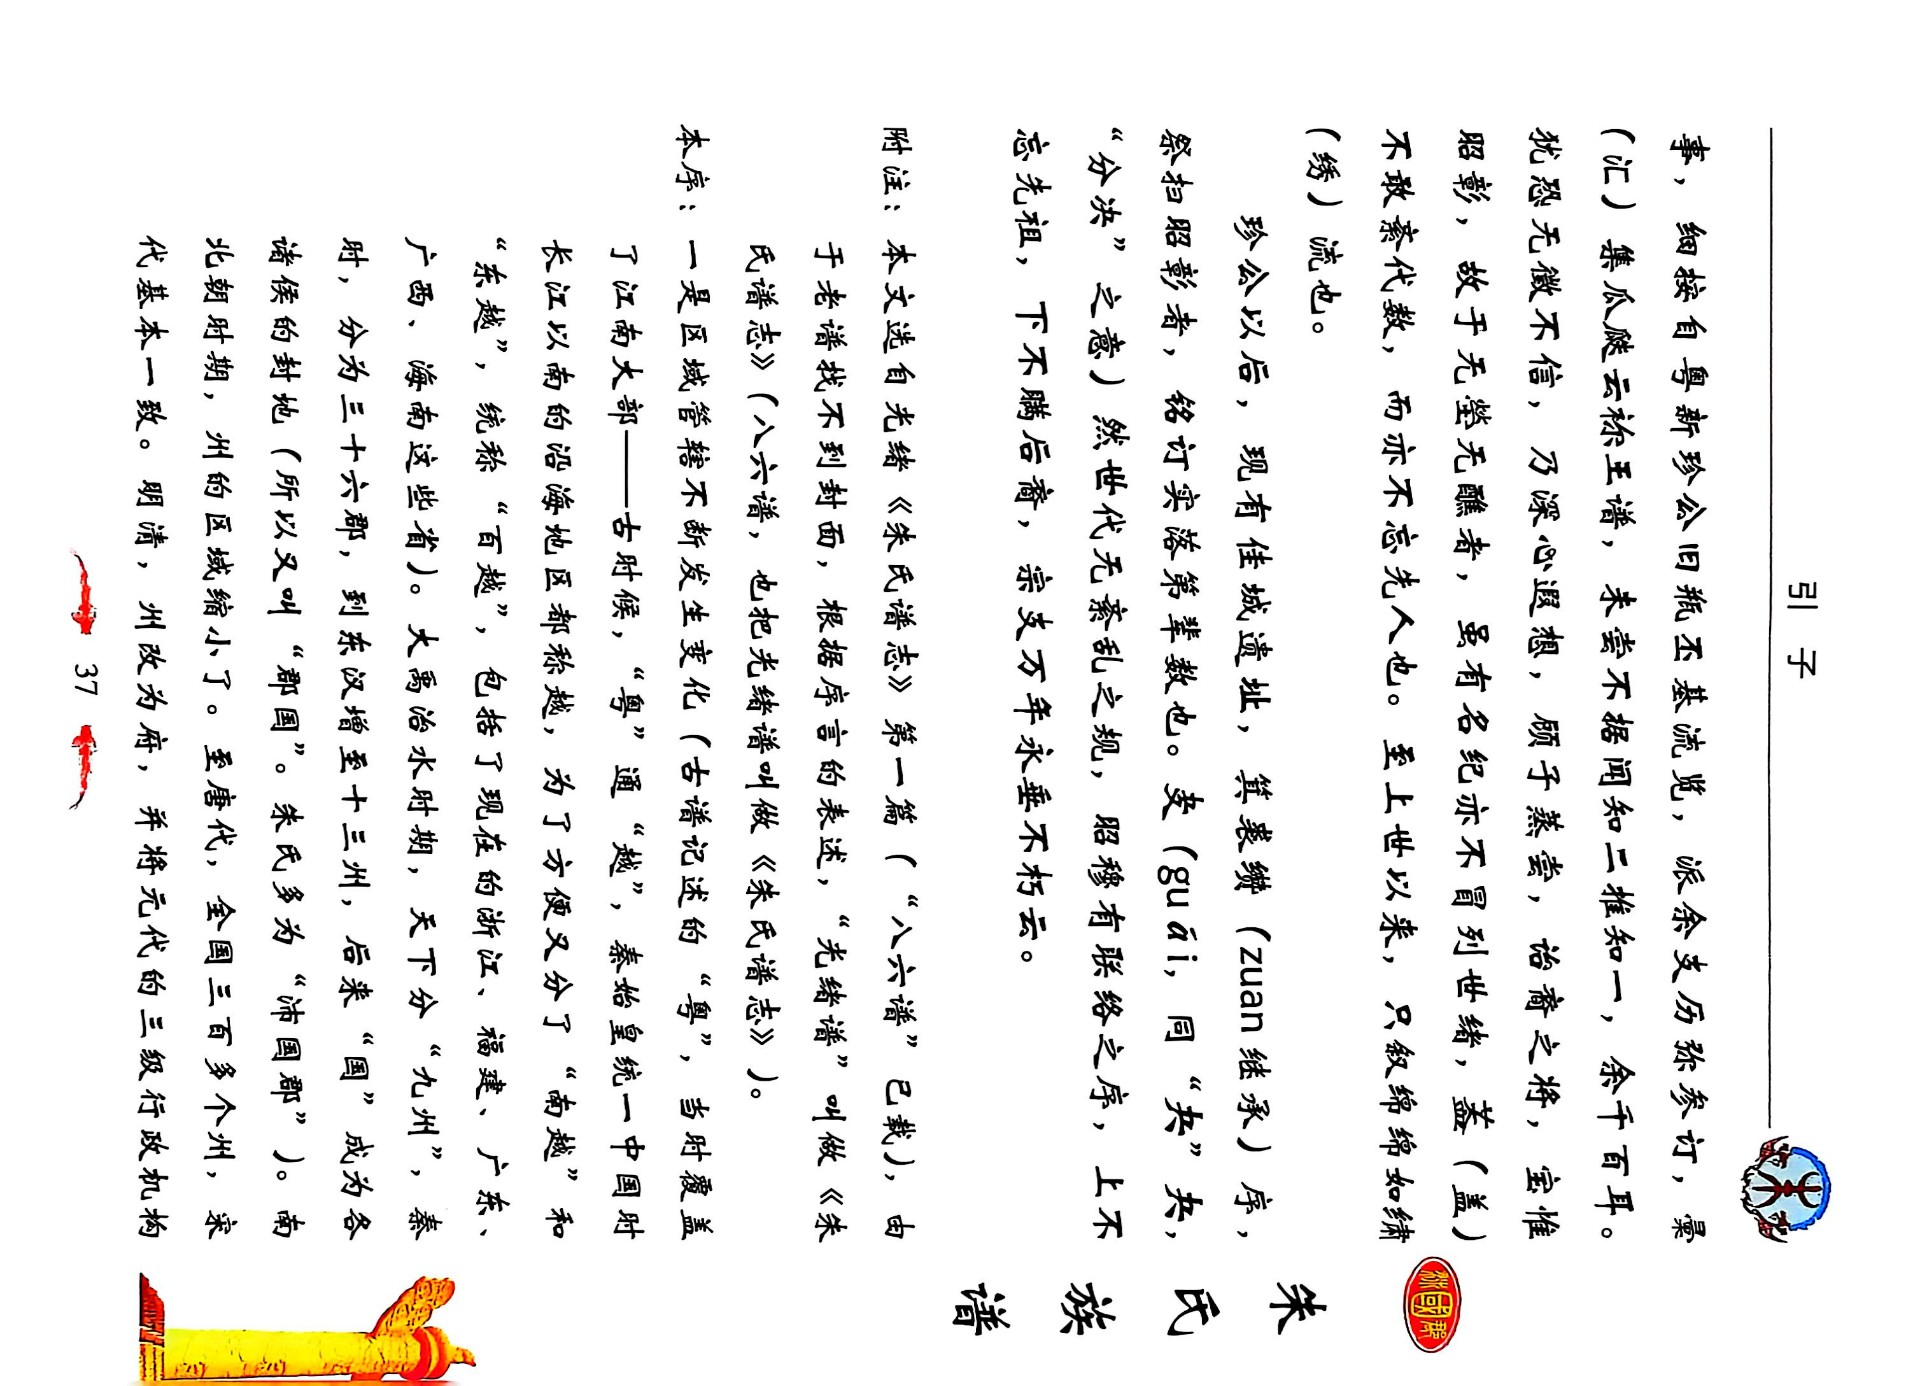 引 子
事，细按自粤新珍公旧瓶丕基流览，派余支历弥参订，彙
（汇）集瓜瓞云祢玉谱，未尝不据闻知二推知一，余千百耳。
犹恐无徵不信，乃深心遐想，顾子蒸尝，诒裔之将，宝惟
昭彰，故于无茔无醮者，虽有名纪亦不冒列世绪，葢（盖）
不敢紊代数，而亦不忘先人也。至上世以来，只叙绵绵如繡
（绣）流也。
珍公以后，现有佳城遗址，箕裘缵（zuan 继承）序，
祭扫昭彰者，铭订实落第辈数也。夬（guái，同“夬”夬，
“分决”之意）然世代无紊乱之规，昭穆有联络之序，上不
忘先祖，下不瞒后裔，宗支万年永垂不朽云。
附注：本文选自光绪《朱氏谱志》第一篇（“八六谱”已载），由
于老谱找不到封面，根据序言的表述，“光绪谱”叫做《朱
氏谱志》（八六谱，也把光绪谱叫做《朱氏谱志》）。
本序：一是区域管辖不断发生变化（古谱记述的“粤”，当时覆盖
了江南大部——古时候，“粤”通“越”，秦始皇统一中国时
长江以南的沿海地区都称越，为了方便又分了“南越”和
“东越”，统称“百越”，包括了现在的浙江、福建、广东、
广西、海南这些省）。大禹治水时期，天下分“九州”，秦
时，分为三十六郡，到东汉增至十三州，后来“国”成为各
诸侯的封地（所以又叫“郡国”。朱氏多为“沛国郡”）。南
北朝时期，州的区域缩小了。至唐代，全国三百多个州，宋
代基本一致。明清，州改为府，并将元代的三级行政机构
37
朱氏族谱